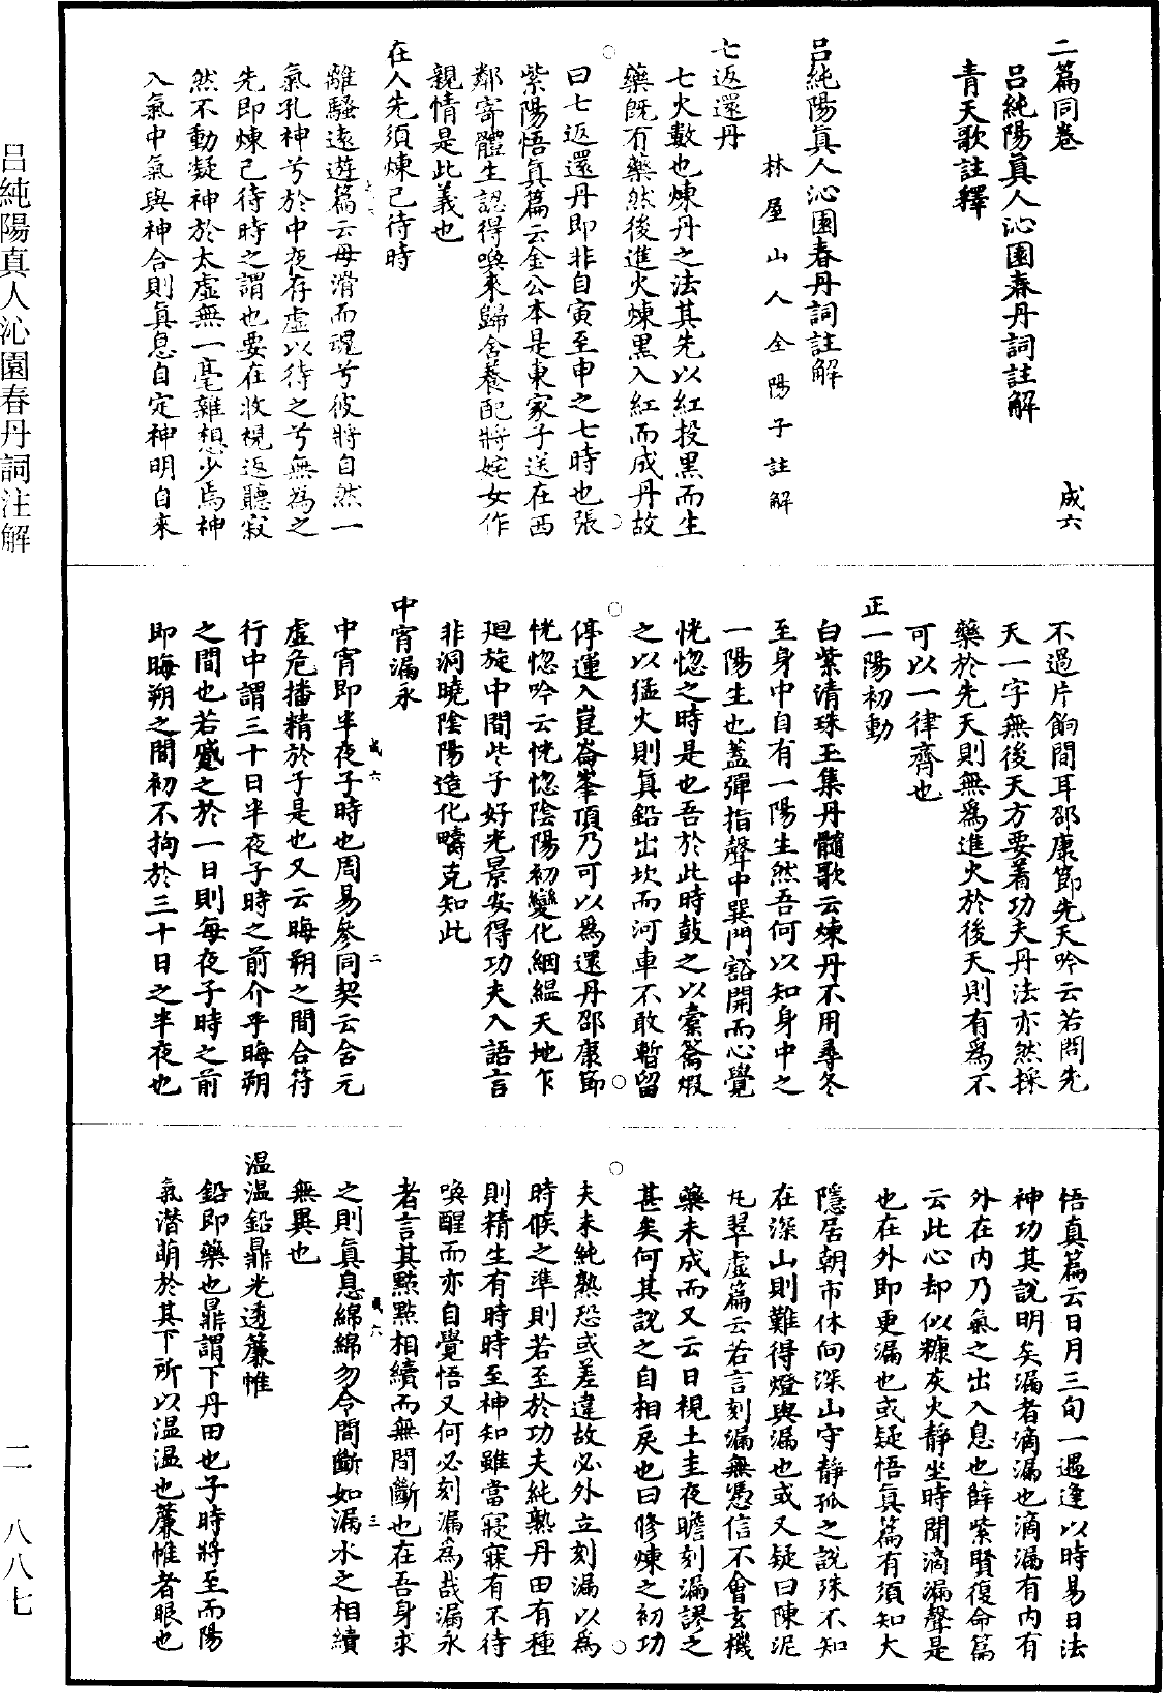 二篇同卷　成六
呂純陽眞人沁園春丹詞註解
青天歌註釋
呂純陽眞人沁園春丹詞註解
林屋山人全陽子註解
七返還丹
七火數也煉丹之法其先以紅投黑而生
藥旣有藥然後進火煉黑入紅而成丹故
曰七返還丹即非自寅至申之七時也張
紫陽悟眞篇云金公本是東家子送在西
鄰寄體生認得喚來歸舍養配將姹女作
親情是此義也
在人先須煉己待時
離騷遠遊篇云毋滑而魂兮彼將自然一
氣孔神兮於中夜存虛以待之兮無為之
先即煉己待時之謂也要在收視返聽寂
然不動凝神於太虛無一毫雜想少焉神
入氣中氣與神合則眞息自定神明自來
不過片餉間耳邵康節先天吟云若問先
天一字無後天方要着功夫丹法亦然採
藥於先天則無爲進火於後天則有爲不
可以一律齊也
正一陽初動
白紫清珠玉集丹髓歌云煉丹不用尋冬
至身中自有一陽生然吾何以知身中之
一陽生也蓋彈指聲中巽門豁開而心覺
恍惚之時是也吾於此時鼓之以橐籥煆
之以猛火則眞鉛出坎而河車不敢暫留
停運入崑崙峯頂乃可以爲還丹邵康節
恍惚吟云恍惚陰陽初變化絪縕天地乍
廻旋中間些子好光景安得功夫入語言
非洞曉陰陽造化疇克知此
中宵漏永
中宵即半夜子時也周易參同契云含元
虛危播精於子是也又云晦朔之間合符
行中謂三十日半夜子時之前介乎晦朔
之間也若蹙之於一日則每夜子時之前
即晦朔之間初不拘於三十日之半夜也
悟真篇云日月三旬一遇逢以時易日法
神功其說明矣漏者滴漏也滴漏有內有
外在內乃氣之出入息也薛紫賢復命篇
云此心却似糠灰火靜坐時聞滴漏聲是
也在外即更漏也或疑悟真篇有須知大
隱居朝市休向深山守靜孤之說殊不知
在深山則難得燈與漏也或又疑曰陳泥
丸翠虛篇云若言刻漏無憑信不會玄機
藥未成而又云日視土圭夜瞻刻漏謬之
甚矣何其說之自相戾也曰修煉之初功
夫未純熟恐或差違故必外立刻漏以爲
時候之準則若至於功夫純熟丹田有種
則精生有時時至神知雖當寢寐有不待
喚醒而亦自覺悟又何必刻漏為哉漏永
者言其點點相續而無間斷也在吾身求
之則眞息綿綿勿令間斷如漏水之相續
無異也
溫溫鉛鼎光透簾帷
鉛即藥也鼎謂下丹田也子時將至而陽
氣潛萌於其下所以溫溫也簾帷者眼也
成六
二
成六
三
呂純陽真人沁園春丹詞注解
二一八八七